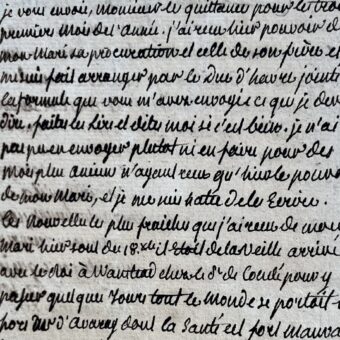 je vous envoi, monsieur la quittance pour le trois
premiers mois de l'année. j'ai reçu hier pouvoir de
mon Mari sa procuration et celle de son frère et
me suis fait arranger par le Duc d'havré jointe
la formule que vous m'avez envoyée ci que je dois
dire, faites les lire et dites moi si c'est bien. je n'ai
pas pu en envoyer plutot ni en faire pour des
mois plus anciens n'ayant reçu qu'hier le pouvoir
de mon Mari, et je me suis hatée de le Ecrire.
Les nouvelles le plus fraiches que j'ai reçu de mon
Mari hier sont du 18. il Etoit de la veille arrivé
avec le Roi à Wanstead chez le Pr. de Condé pour y
passer quelque Jours tout le Monde se portait
hors Mr d'avaray dont la Santé est fort mauva